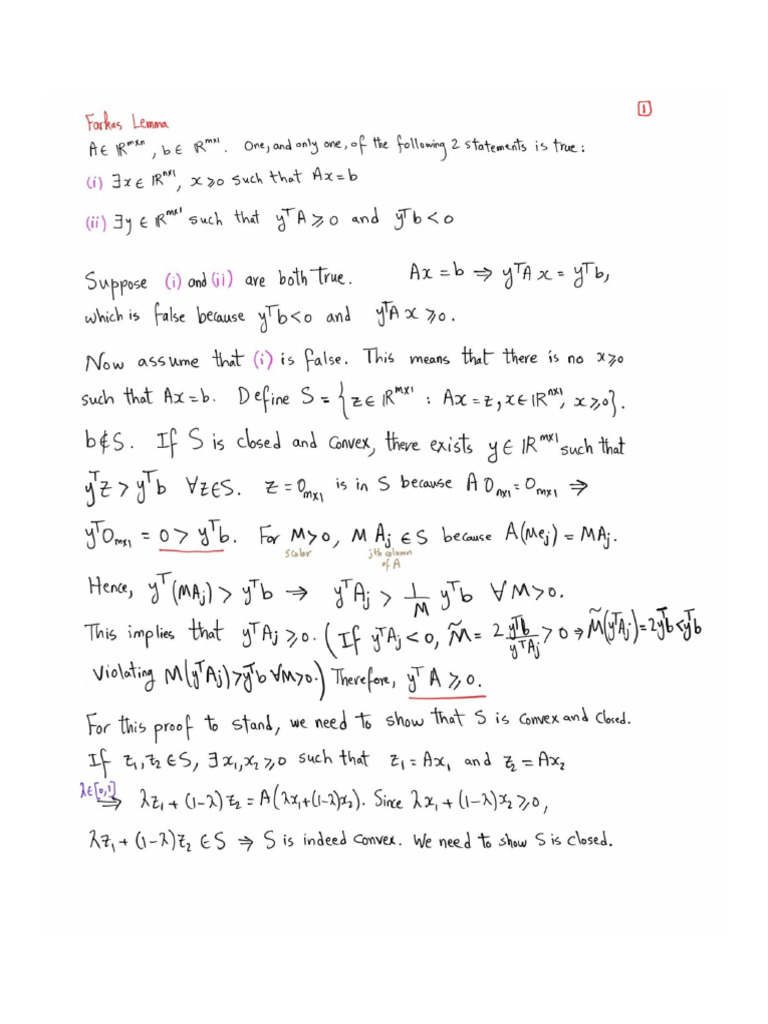 1
Farkas Lemma
A ∈ ℝ^{m×n}, b ∈ ℝ^{m×1}. One, and only one, of the following 2 statements is true:
(i) ∃x ∈ ℝ^{n×1}, x ≥ 0 such that Ax = b
(ii) ∃y ∈ ℝ^{m×1} such that y^T A ≥ 0 and y^T b < 0
Suppose (i) and (ii) are both true. Ax = b ⇒ y^T A x = y^T b,
which is false because y^T b < 0 and y^T A x ≥ 0.
Now assume that (i) is false. This means that there is no x ≥ 0
such that Ax = b. Define S = {z ∈ ℝ^{m×1} : Ax = z, x ∈ ℝ^{n×1}, x ≥ 0}.
b ∉ S. If S is closed and convex, there exists y ∈ ℝ^{m×1} such that
y^T z > y^T b ∀z ∈ S. z = 0_{m×1} is in S because A 0_{n×1} = 0_{m×1} ⇒
y^T 0_{m×1} = 0 > y^T b. For M > 0, M A_j ∈ S because A(M e_j) = M A_j.
scalar jth column
of A
Hence, y^T (M A_j) > y^T b ⇒ y^T A_j > 1/M y^T b ∀M > 0.
This implies that y^T A_j ≥ 0. (If y^T A_j < 0, M̃ = 2 y^T b / y^T A_j > 0 ⇒ M̃(y^T A_j) = 2y^T b < y^T b
violating M(y^T A_j) > y^T b ∀M > 0.) Therefore, y^T A ≥ 0.
For this proof to stand, we need to show that S is convex and closed.
If z_1, z_2 ∈ S, ∃x_1, x_2 ≥ 0 such that z_1 = Ax_1 and z_2 = Ax_2
λ∈[0,1]
⇒ λz_1 + (1-λ)z_2 = A(λx_1 + (1-λ)x_2). Since λx_1 + (1-λ)x_2 ≥ 0,
λz_1 + (1-λ)z_2 ∈ S ⇒ S is indeed convex. We need to show S is closed.